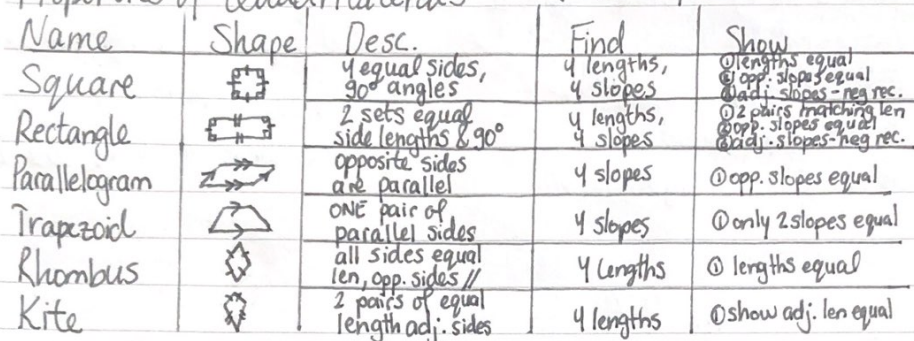 Properties of Quadrilaterals
Name Shape Desc. Find Show
Square 4 equal sides, 90° angles 4 lengths, 4 slopes ① lengths equal ② opp. slopes equal ③ adj. slopes - neg rec.
Rectangle 2 sets equal side lengths & 90° 4 lengths, 4 slopes ① 2 pairs matching len ② opp. slopes equal ③ adj. slopes - neg rec.
Parallelogram opposite sides are parallel 4 slopes ① opp. slopes equal
Trapezoid ONE pair of parallel sides 4 slopes ① only 2 slopes equal
Rhombus all sides equal len, opp. sides // 4 lengths ① lengths equal
Kite 2 pairs of equal length adj. sides 4 lengths ① show adj. len equal